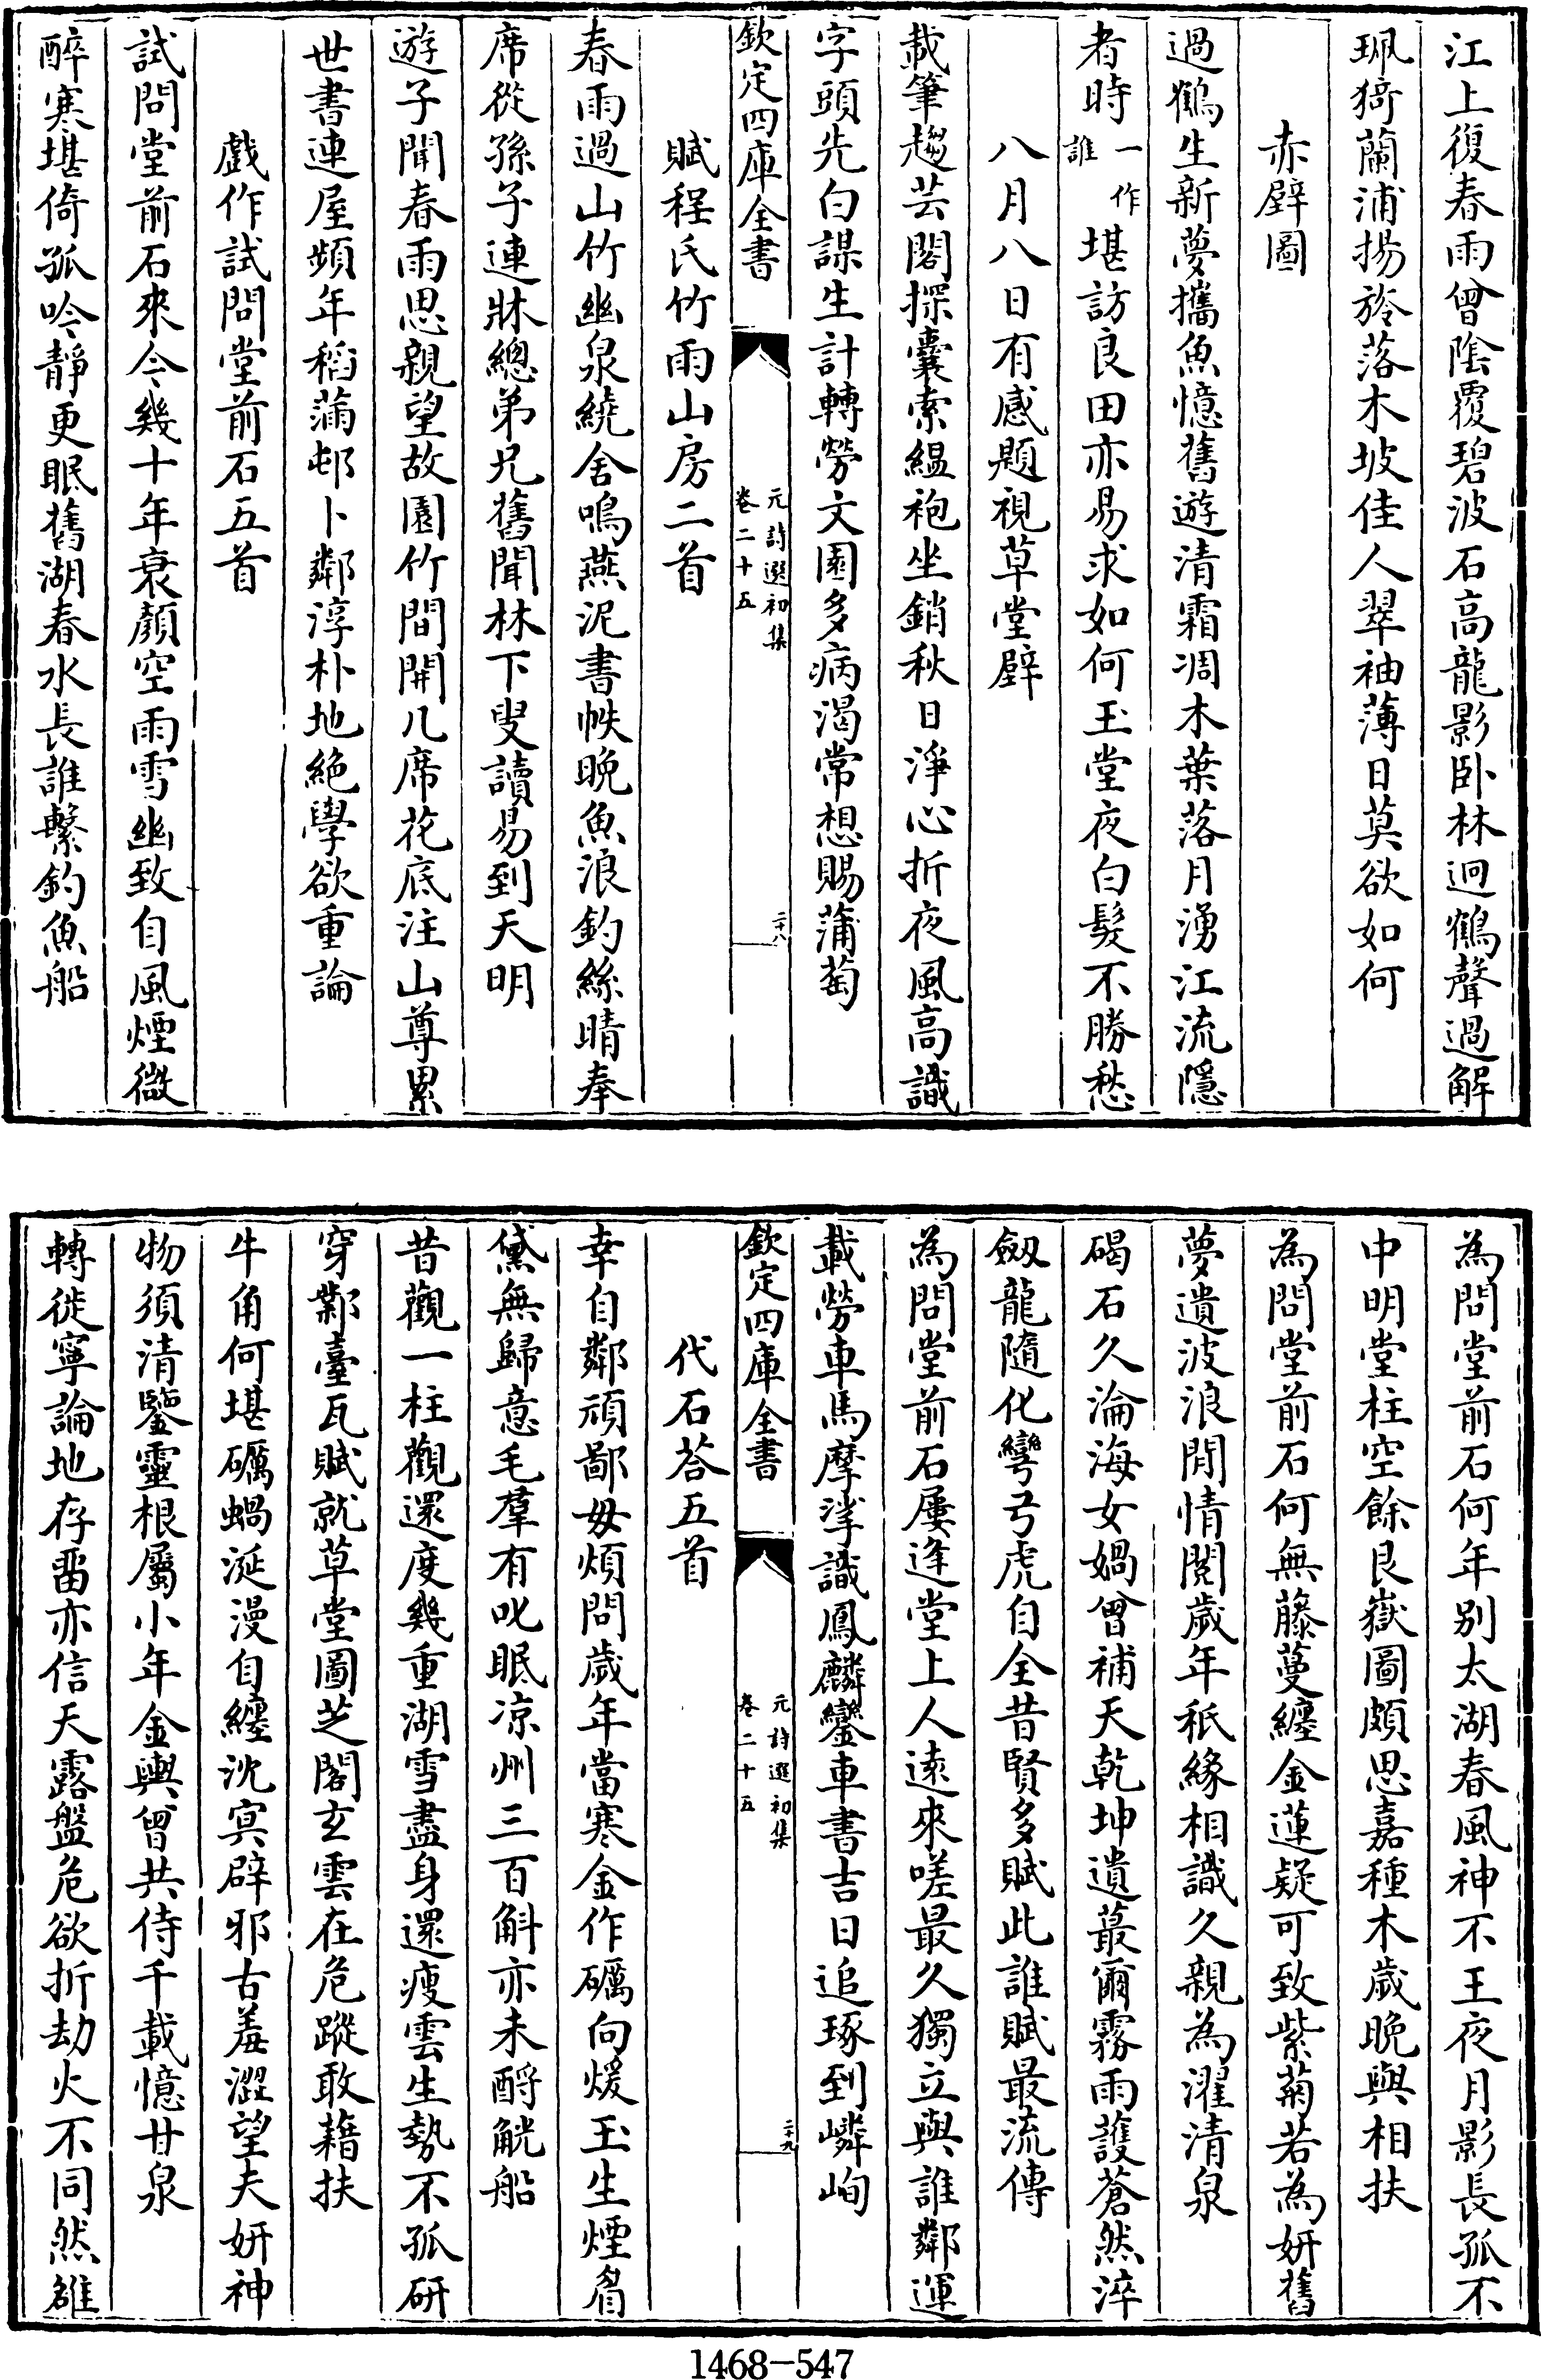 江上復春雨曾陰覆碧波石高龍影卧林迥鶴聲過解
珮猗蘭浦揚於落木坡佳人翠袖薄日莫欲如何
赤壁圖
過鶴生新夢攜魚憶舊遊清霜凋木葉落月湧江流隱
者時一作誰堪訪良田亦易求如何玉堂夜白髮不勝愁
八月八日有感題視草堂壁
載筆趨芸閣探囊索縕袍坐銷秋日淨心折夜風高識
字頭先白謀生計轉勞文園多病渴常想賜蒲萄
欽定四庫全書
元詩選初集
卷二十五
二十八
賦程氏竹雨山房二首
春雨過山竹幽泉繞舍鳴燕泥書帙晚魚浪釣絲晴奉
席從孫子連牀總弟兄舊聞林下叟讀易到天明
遊子聞春雨思親望故園竹間開几席花底注山尊累
世書連屋頻年稻蒲邨卜鄰淳朴地絕學欲重論
戲作試問堂前石五首
試問堂前石來今幾十年衰顏空雨雪幽致自風煙微
醉寒堪倚孤吟靜更眠舊湖春水長誰繫釣魚船
為問堂前石何年别太湖春風神不王夜月影長孤不
中明堂柱空餘艮嶽圖頗思嘉種木歲晚與相扶
為問堂前石何無藤蔓纏金蓮疑可致紫菊若為妍舊
夢遺波浪閒情閱歲年秖緣相識久親為濯清泉
碣石久淪海女媧曾補天乾坤遺蕞爾霧雨護蒼然淬
劒龍隨化彎弓虎自全昔賢多賦此誰賦最流傳
為問堂前石屢逢堂上人遠來嗟最久獨立與誰鄰運
載勞車馬摩挲識鳳麟鑾車書吉日追琢到嶙峋
欽定四庫全書
元詩選初集
卷二十五
二十九
代石荅五首
幸自鄰頑鄙毋煩問歲年當寒金作礪向煖玉生煙眉
黛無歸意毛羣有叱眠凉州三百斛亦未酹觥船
昔觀一柱觀還度幾重湖雪盡身還瘦雲生勢不孤研
穿鄴臺瓦賦就草堂圖芝閣玄雲在危蹤敢藉扶
牛角何堪礪蝸涎漫自纏沈冥辟邪古羞澀望夫妍神
物須清鑒靈根屬小年金輿曾共侍千載憶甘泉
轉徙寧論地存畱亦信天露盤危欲折劫火不同然雖
1468-547